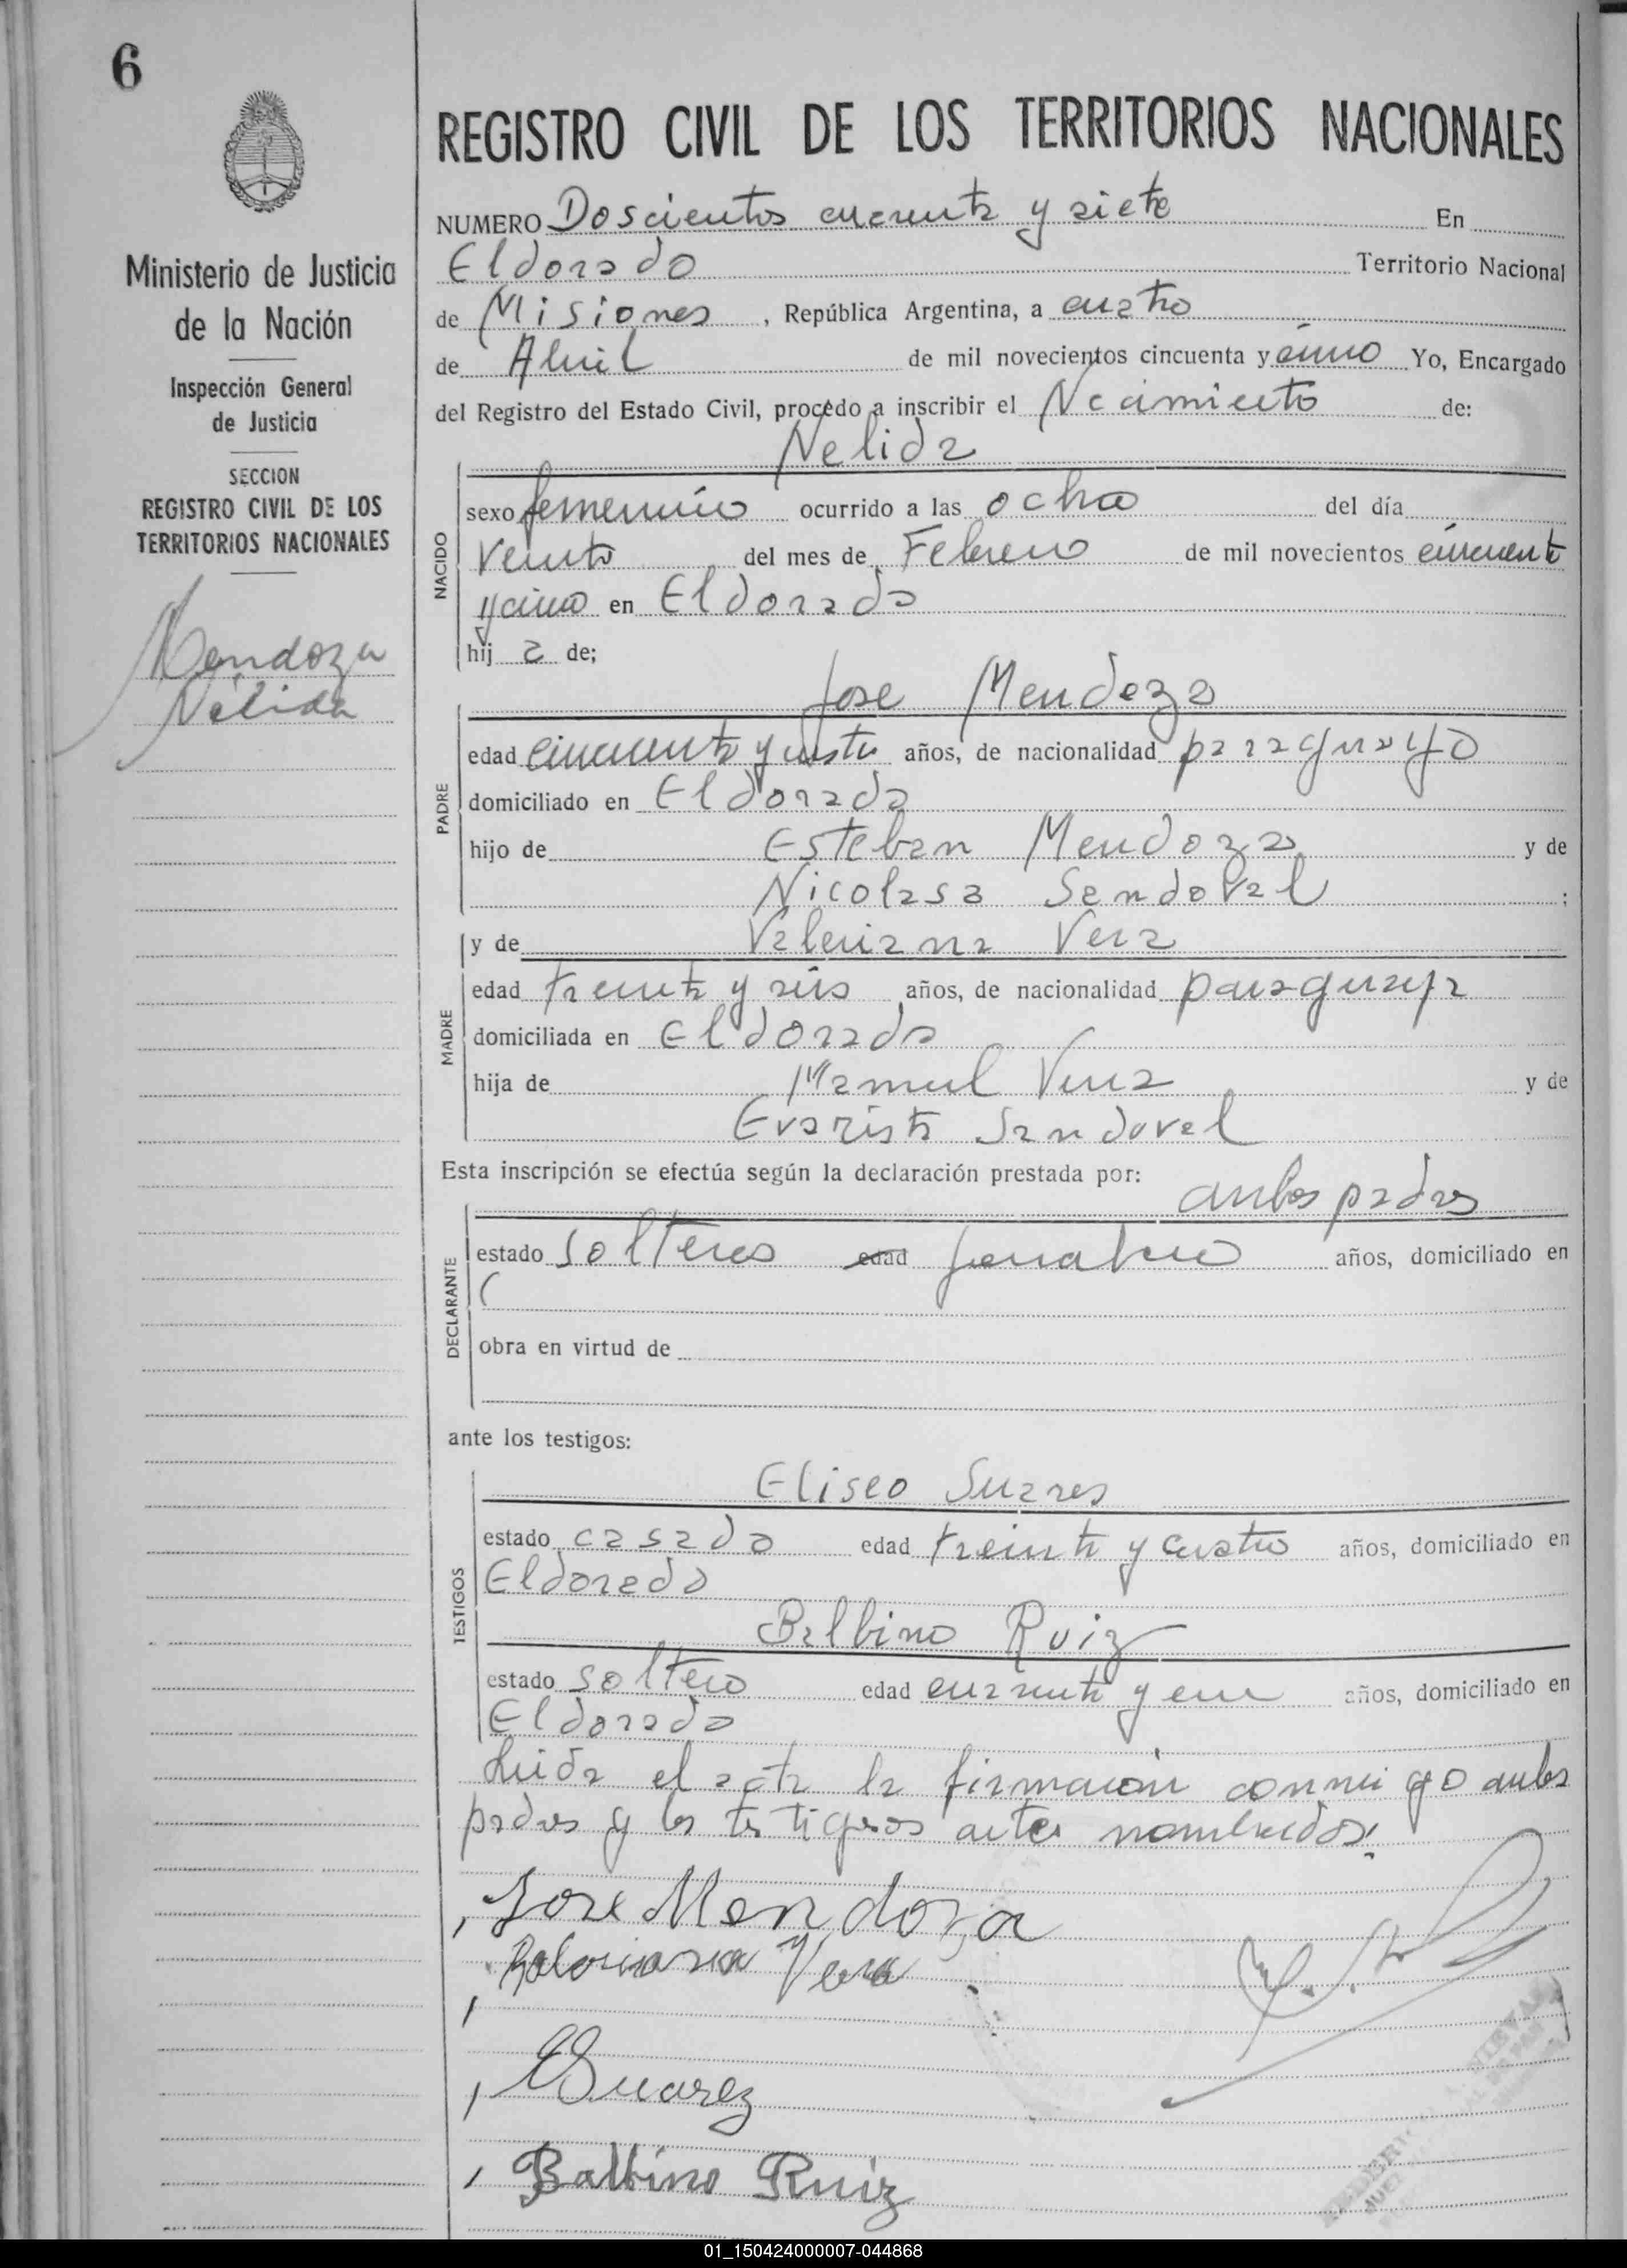 6
Ministerio de Justicia
de la Nación
Inspección General
de Justicia
SECCION
REGISTRO CIVIL DE LOS
TERRITORIOS NACIONALES
Mendoza
Nélida
REGISTRO CIVIL DE LOS TERRITORIOS NACIONALES
NUMERO Doscientos cuarenta y siete En
Eldorado Territorio Nacional
de Misiones, República Argentina, a cuatro
de Abril de mil novecientos cincuenta y cinco Yo, Encargado
del Registro del Estado Civil, procedo a inscribir el Ncimiento de:
Nelida
NACIDO
sexo femenino ocurrido a las ocho del día
veinte del mes de Febrero de mil novecientos cincuenta
y cinco en Eldorado
hij a de;
Jose Mendoza
PADRE
edad cincuenta y cuatro años, de nacionalidad paraguayo
domiciliado en Eldorado
hijo de Esteban Mendoza y de
Nicolasa Sandoval ;
y de Valeriana Vera
MADRE
edad treinta y seis años, de nacionalidad paraguaya
domiciliada en Eldorado
hija de Manuel Vera y de
Evarista Sandoval
Esta inscripción se efectúa según la declaración prestada por:
ambos padres
DECLARANTE
estado solteros edad años, domiciliado en
obra en virtud de
ante los testigos:
TESTIGOS
Eliseo Suares
estado casado edad treinta y cuatro años, domiciliado en
Eldorado
Balbino Ruiz
estado soltero edad cuarenta y años, domiciliado en
Eldorado
Leida el acta la firmaron conmigo ambos
padres y los testigos antes nombrados.
Jose Mendoza
Baloriana Vera
ESuarez
Balbino Ruiz
01_150424000007-044868